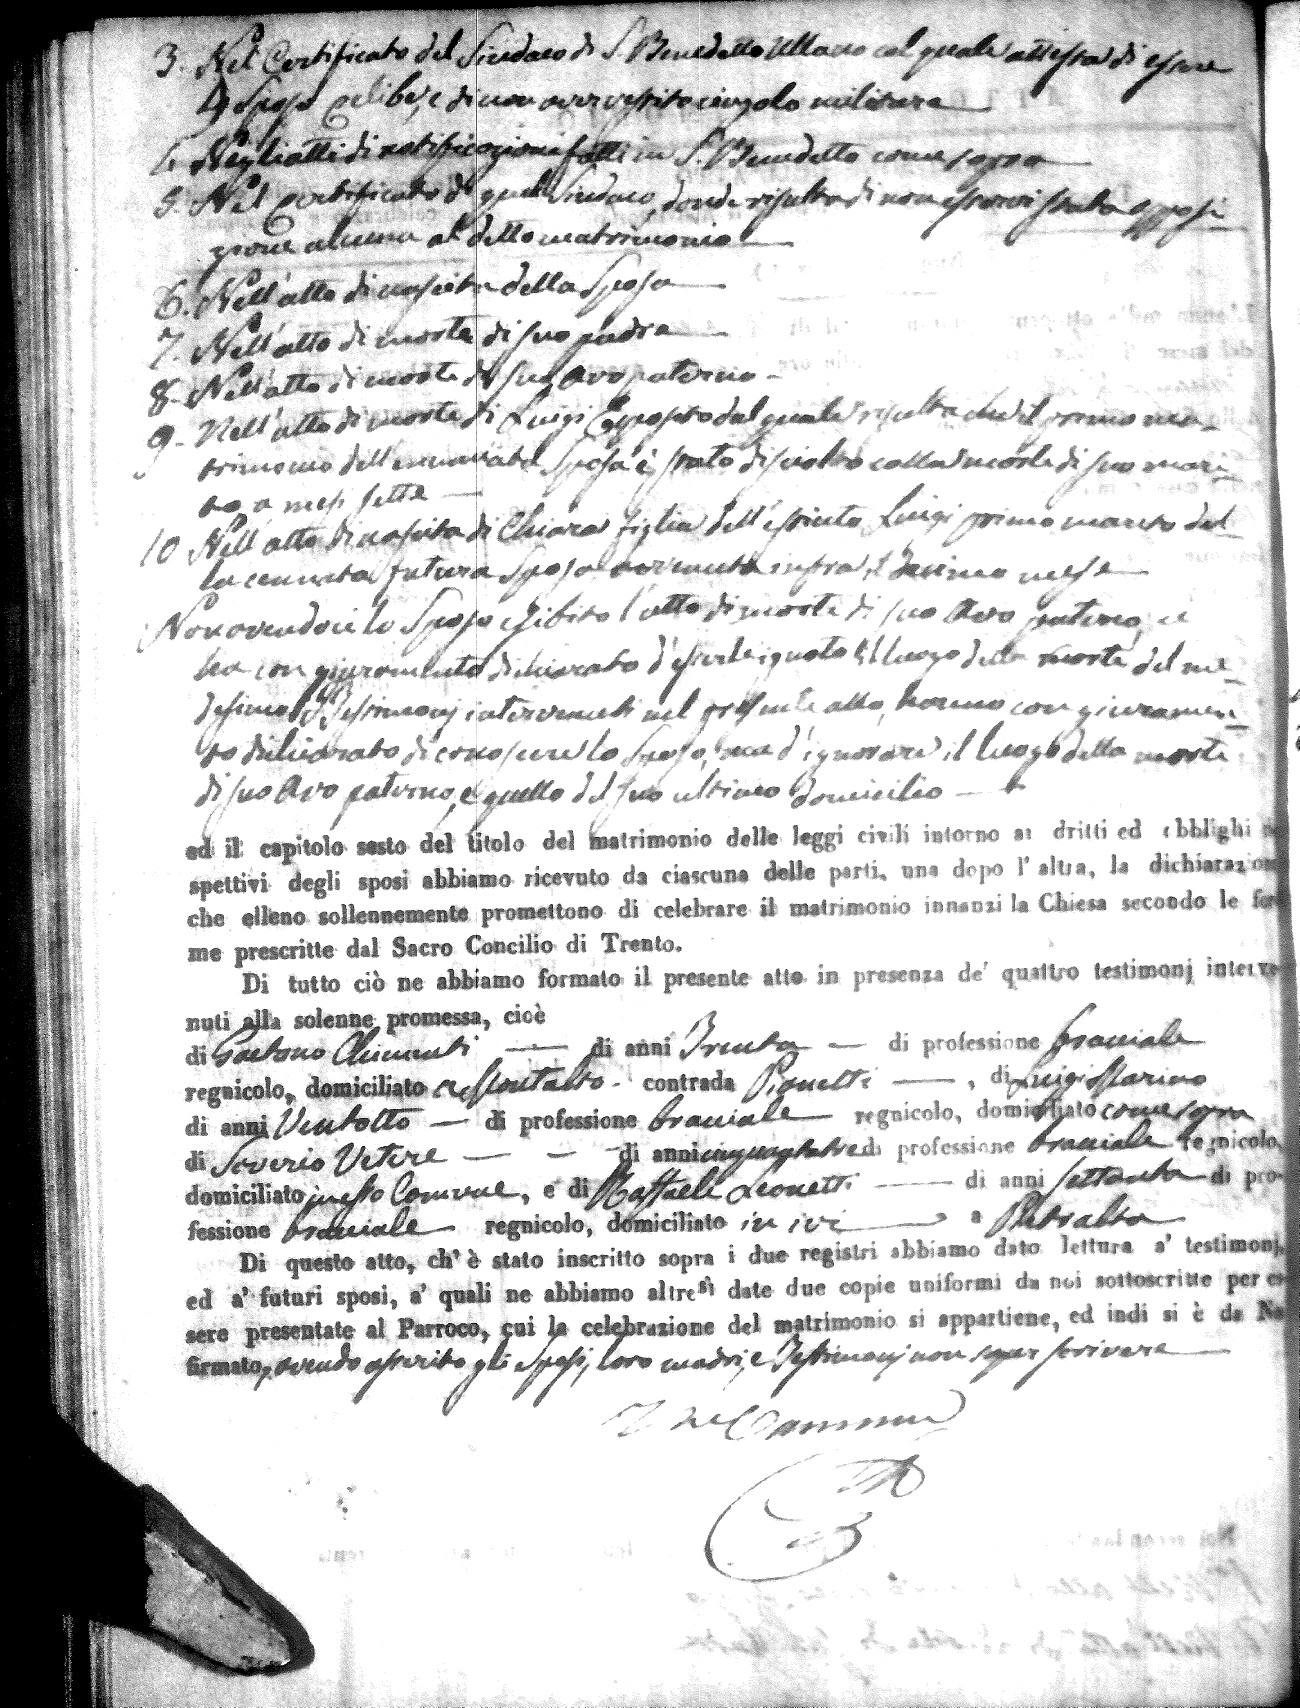 3. Nel Certificato del Sindaco di S. Benedetto Ullano col quale attesta di essere
lo Sposo celibe, e di non aver vestito cingolo militare
4. Negli atti di notificazioni fatti in S. Benedetto come sopra
5. Nel certificato di quel Sindaco, donde risulta di non esservi stata opposi-
zione alcuna al detto matrimonio
6. Nell'atto di nascita della Sposa
7. Nell'atto di morte di suo padre
8. Nell'atto di morte di suo Avo paterno
9. Nell'atto di morte di Luigi Esposito dal quale risulta che il primo ma-
trimonio dell'enunciata Sposa è stato disciolto colla morte di suo mari-
to, a mesi sette
10 Nell'atto di nascita di Chiara figlia dell'estinto Luigi primo marito del-
la cennata futura Sposa avvenuta infra il decimo mese
Non avendoci lo Sposo esibito l'atto di morte di suo Avo paterno, ci
ha con giuramento dichiarato d'essergli ignoto il luogo della morte del me-
desimo. I Testimonj intervenuti nel presente atto, hanno con giuramen-
to dichiarato di conoscere lo Sposo, ma d'ignorare il luogo della morte
di suo Avo paterno, e quello del suo ultimo domicilio
ed il capitolo sesto del titolo del matrimonio delle leggi civili intorno ai dritti ed obblighi
spettivi degli sposi abbiamo ricevuto da ciascuna delle parti, una dopo l' altra, la dichiarazione
che elleno sollennemente promettono di celebrare il matrimonio innanzi la Chiesa secondo le for
me prescritte dal Sacro Concilio di Trento.
Di tutto ciò ne abbiamo formato il presente atto in presenza de' quattro testimonj interve
nuti alla solenne promessa, cioè
di Gaetano Chimenti di anni Trenta di professione bracciale
regnicolo, domiciliato a Montalto contrada Pianetti , di Luigi Marino
di anni Ventotto di professione bracciale regnicolo, domiciliato come sopra
di Saverio Vetere di anni cinquantatre di professione bracciale regnicolo,
domiciliato in questo Comune, e di Raffaele Leonetti di anni settanta di pro-
fessione bracciale regnicolo, domiciliato in ivi a Pietralta
Di questo atto, ch' è stato inscritto sopra i due registri abbiamo dato lettura a' testimonj,
ed a' futuri sposi, a' quali ne abbiamo altresì date due copie uniformi da noi sottoscritte per es
sere presentate al Parroco, cui la celebrazione del matrimonio si appartiene, ed indi si è da No
firmato, avendo asserito gli Sposi, loro madri, e Testimonj non saper scrivere